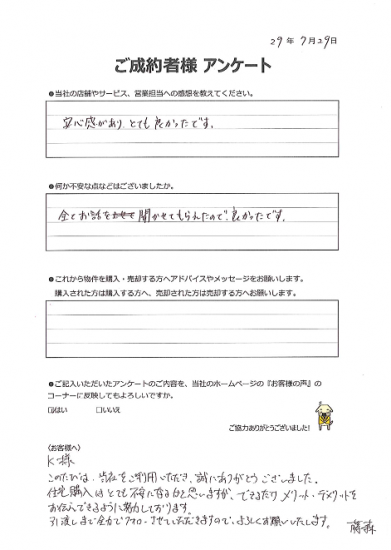 29年 7月29日
ご成約者様 アンケート
●当社の店舗やサービス、営業担当への感想を教えてください。
安心感があり とても 良かったです。
●何か不安な点などはございましたか。
全てお話を聞かせてもらえたので、良かったです。
●これから物件を購入・売却する方へアドバイスやメッセージをお願いします。
購入された方は購入する方へ、売却された方は売却する方へお願いします。
●ご記入いただいたアンケートのご内容を、当社のホームページの『お客様の声』の
コーナーに反映してもよろしいですか。
☑はい □いいえ
ご協力ありがとうございました!
〈お客様へ〉
K様
このたびは、当社をご利用いただき、誠にありがとうございました。
住宅購入はとても不安になると思いますが、できるかぎり メリット・デメリットを
お伝えできるように努力しております。
引渡しまで全力でフォローさせていただきますので、よろしくお願いいたします。